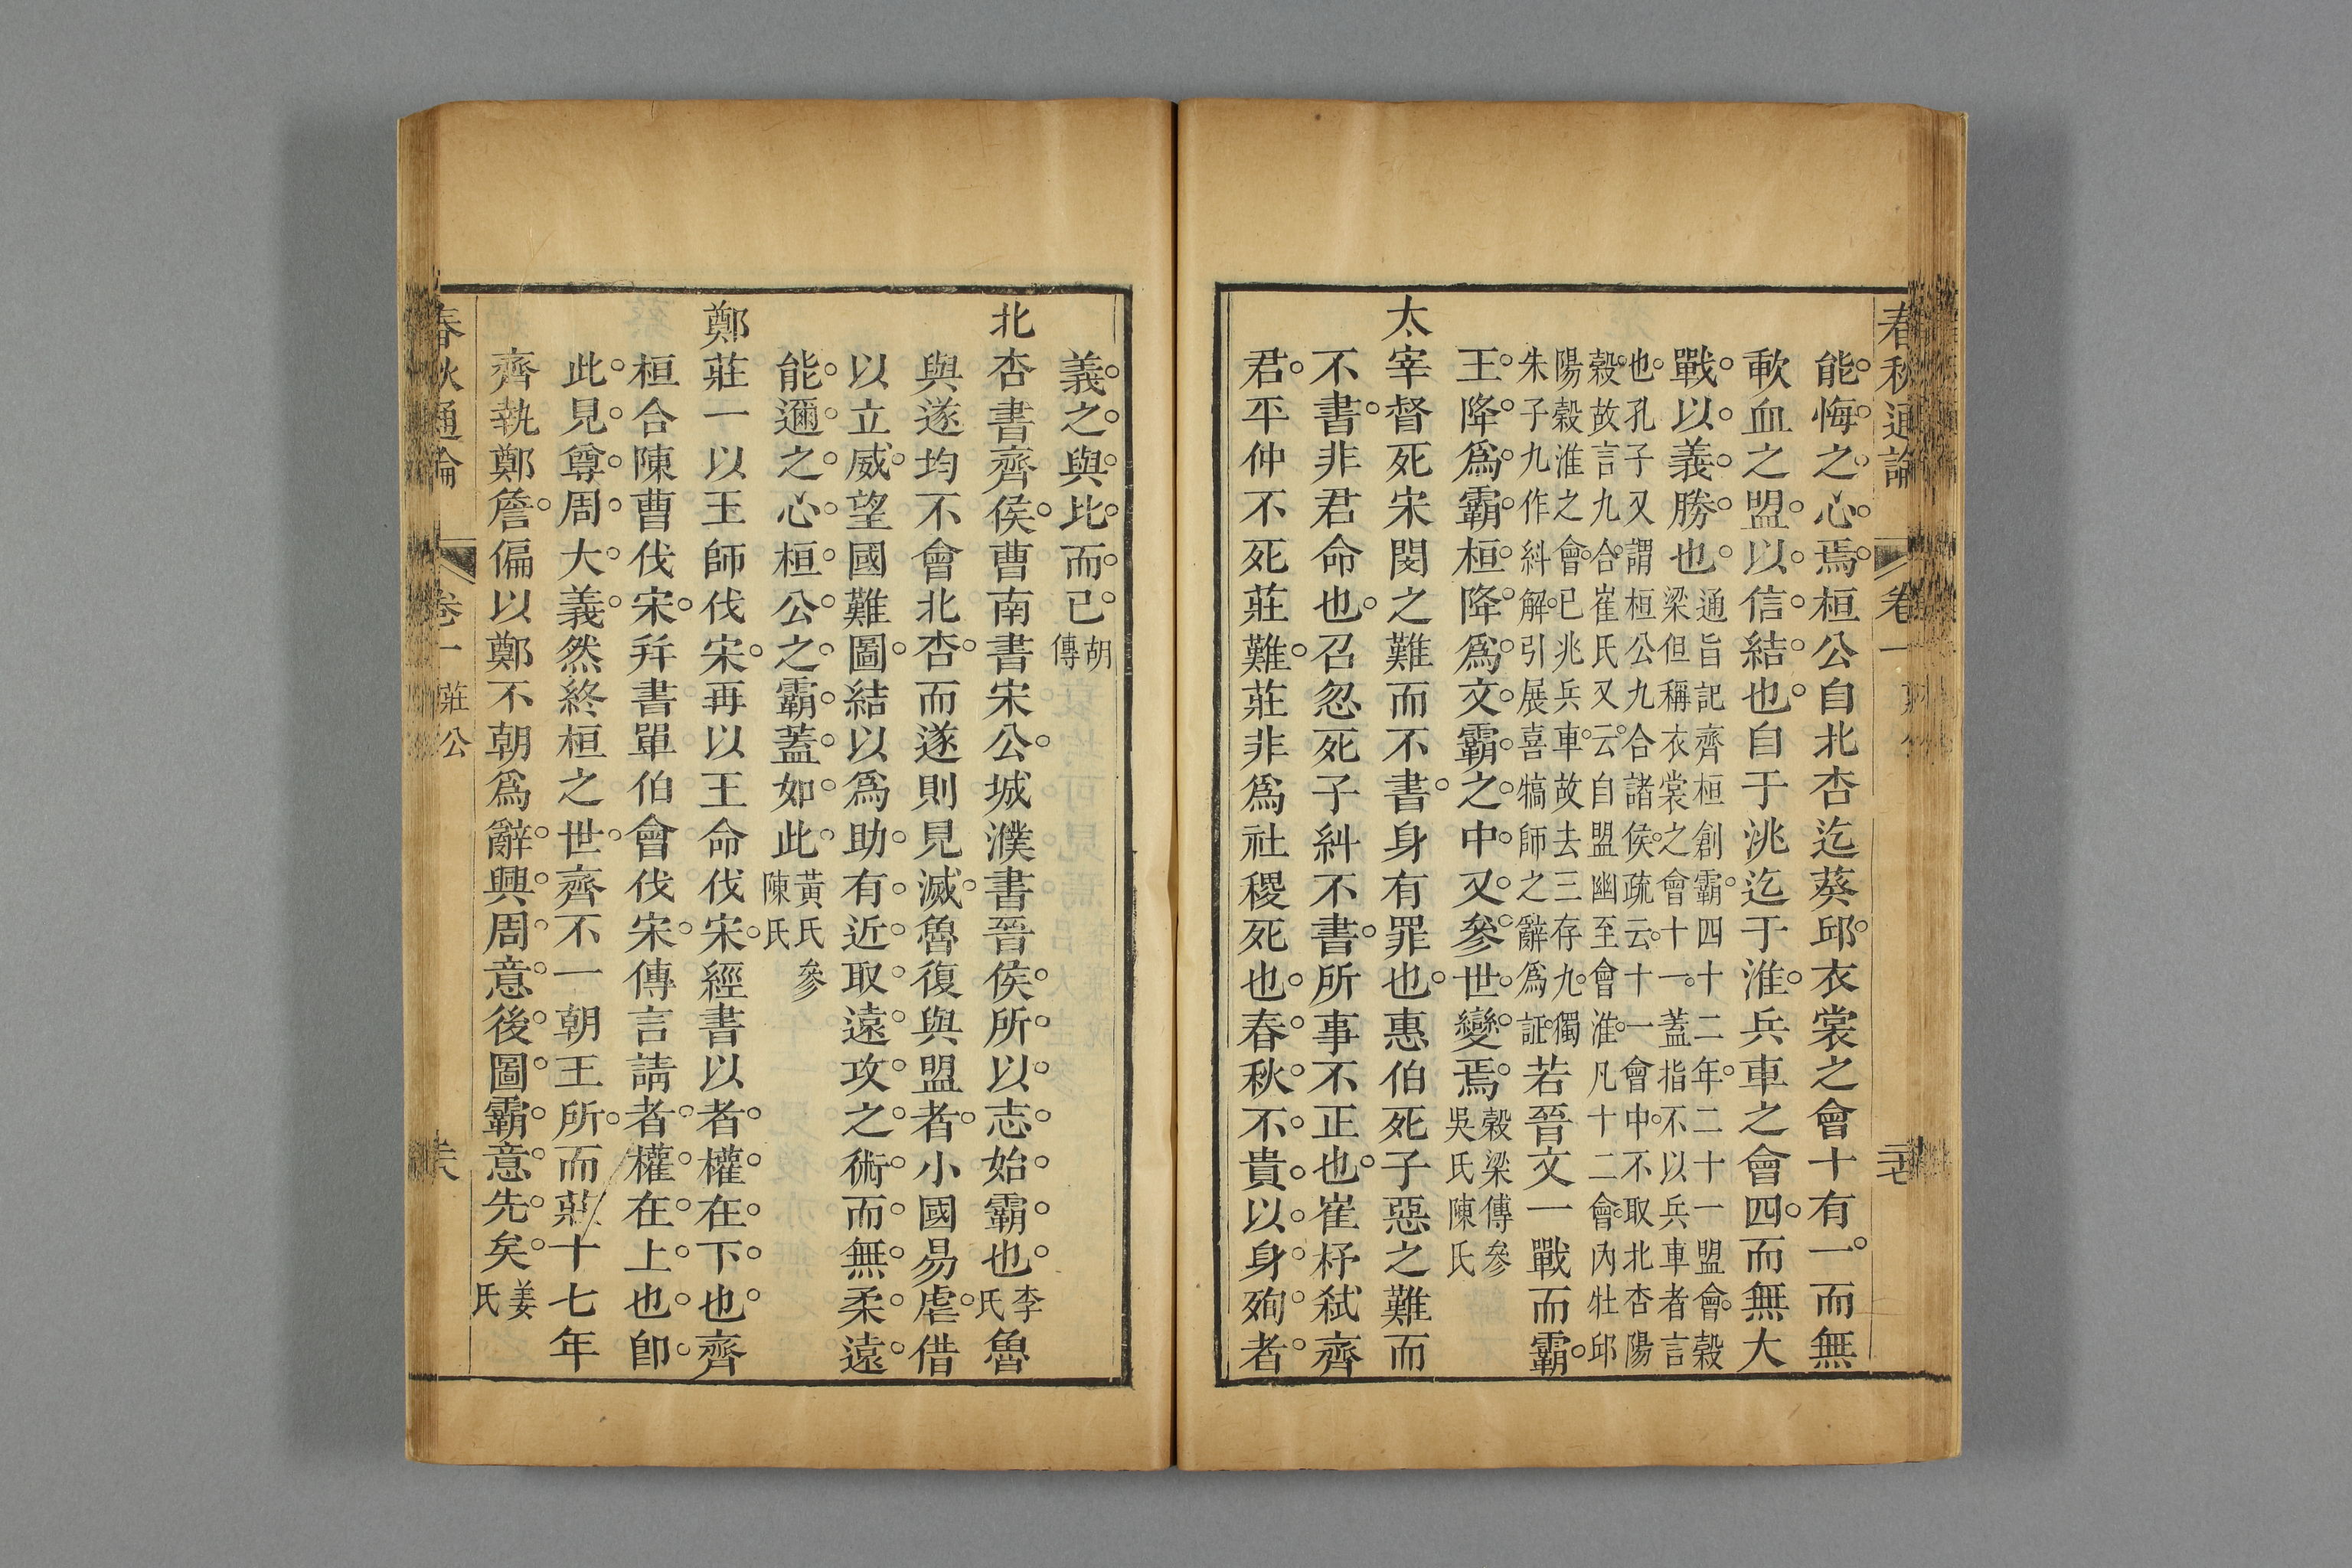 春秋通論 卷一 二十七
能悔之心焉桓公自北杏迄葵邱衣裳之會十有一而無
歃血之盟以信結也自于洮迄于淮兵車之會四而無大
戰以義勝也通旨記齊桓創霸四十二年二十一盟會榖
梁但稱衣裳之會十一蓋指不以兵車者言
也孔子又謂桓公九合諸侯疏云十一會中不取北杏陽
榖故言九合崔氏又云自盟幽至會淮凡十二會內牡邱
陽榖淮之會已兆兵車故去三存九獨
朱子九作糾解引展喜犒師之辭爲証若晉文一戰而霸
王降爲霸桓降爲文霸之中又參世變焉榖梁傳參
吳氏陳氏
太宰督死宋閔之難而不書身有罪也惠伯死子惡之難而
不書非君命也召忽死子糾不書所事不正也崔杼弒齊
君平仲不死莊難莊非爲社稷死也春秋不貴以身殉者
義之與比而已胡
傳
北杏書齊侯曹南書宋公城濮書晉侯所以志始霸也李
氏魯
與遂均不會北杏而遂則見滅魯復與盟者小國易虐借
以立威望國難圖結以爲助有近取遠攻之術而無柔遠
能邇之心桓公之霸蓋如此黃氏參
陳氏
鄭莊一以王師伐宋再以王命伐宋經書以者權在下也齊
桓合陳曹伐宋并書單伯會伐宋傳言請者權在上也卽
此見尊周大義然終桓之世齊不一朝王所而莊十七年
齊執鄭詹偏以鄭不朝爲辭興周意後圖霸意先矣姜
氏
春秋通論 卷一 莊公